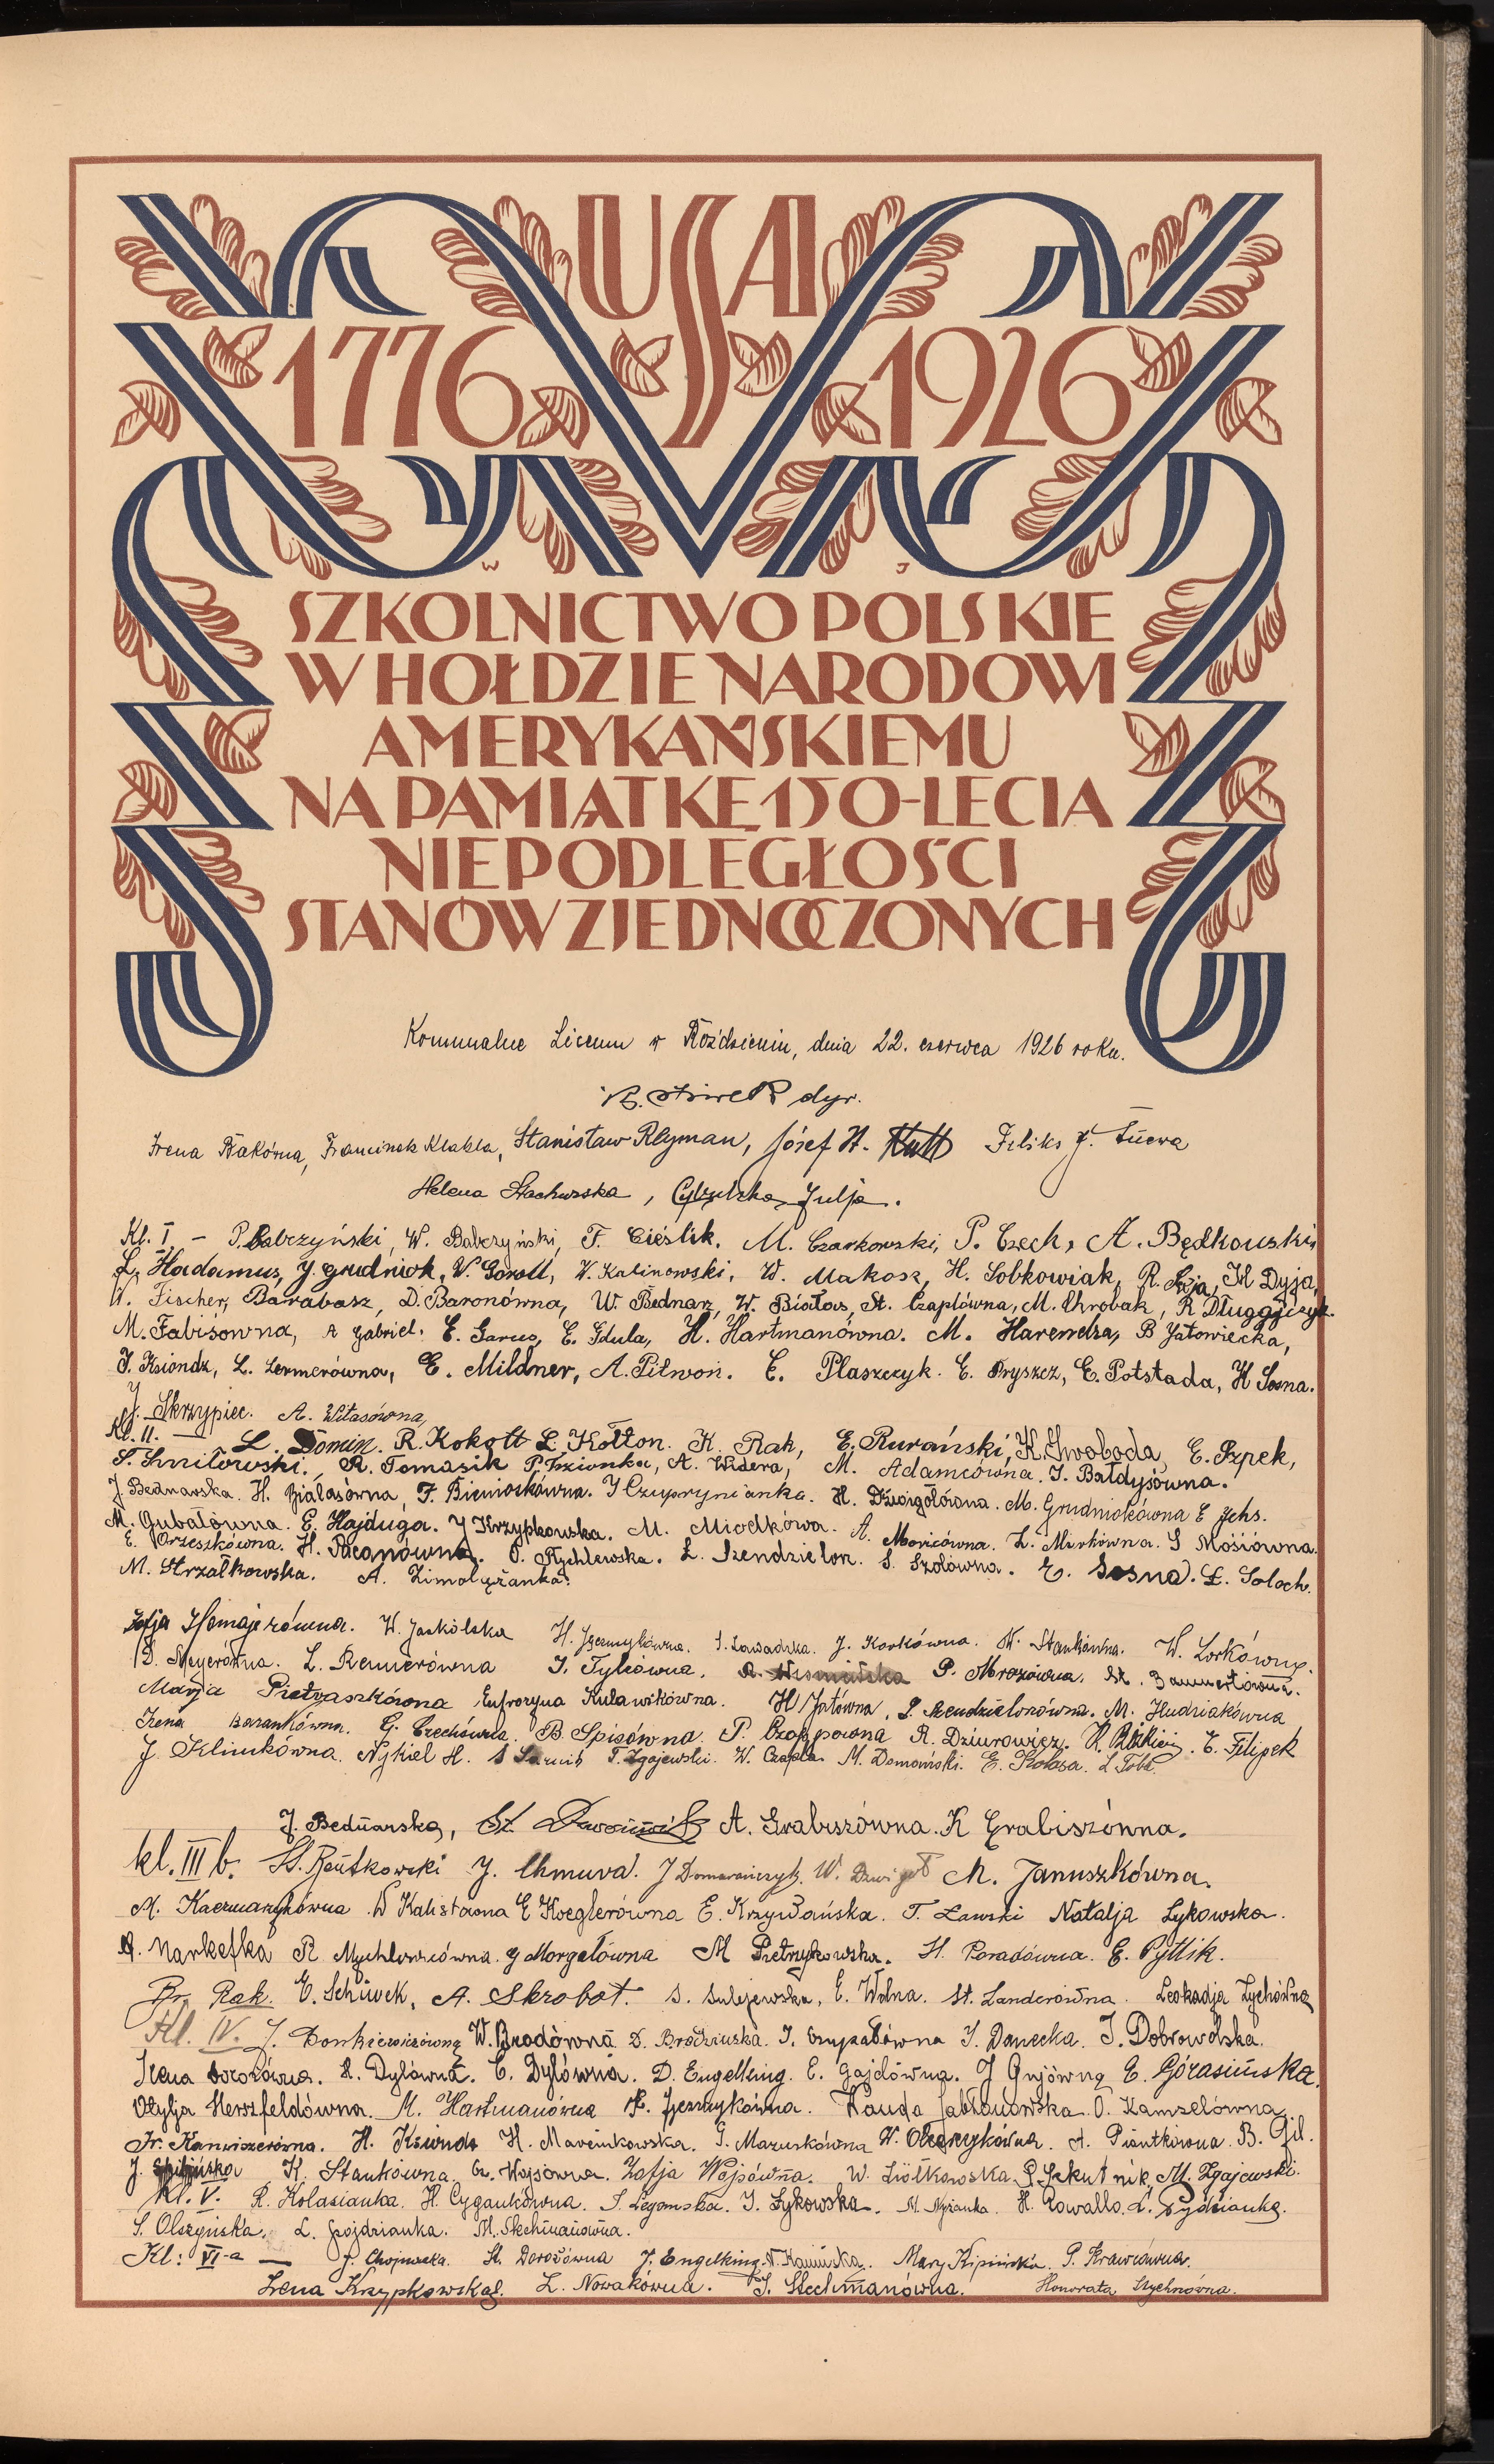 USA
1776 1926
W J
SZKOLNICTWO POLSKIE
W HOŁDZIE NARODOWI
AMERYKAŃSKIEMU
NA PAMIĄTKĘ 150-LECIA
NIEPODLEGŁOŚCI
STANÓW ZJEDNOCZONYCH
Komunalne Liceum w Roździeniu, dnia 22. czerwca 1926 roku.
dyr.
Irena Żakówna, Franciszek Klabla, Stanisław Rlyman, Józef H. Feliks J.
Helena Stachurska, Julja.
Kl. I – P. Babczyński, W. Babczyński, F. Cieślik. M. Czarkowski, P. Czech, A. Będkowski,
L. Hadamus, J. Grudniok, W. Goroll, W. Kalinowski, W. Makosz, H. Sobkowiak, R. Dyja,
W. Fischer, Barabasz, D. Baronówna, W. Bednarz, W. Białas, St. Czaplówna, M. Chrobak, R. Długajczyk.
M. Fabisówna, A Gabriel. E. Garus, E. Gdula, H. Hartmanówna. M. Harendza, B Jałowiecka,
J. Ksiondz, L. Lermerówna, E. Mildner, A. Pitwoń. E. Płaszczyk. E. Pryszcz, E. Potstada, H Sosna.
J. Skrzypiec. A. Witasówna,
Kl. II. — L. Domin. R. Kokott L. Kołton. K. Rak, E. Rurański, K. Swoboda, E. Szpek,
S. Smiłowski. R. Tomasik P. Trzionka, A. Widera, M. Adamcówna. J. Bałdysówna.
J Bednarska. H. Białasówna, F. Bienioskówna. J Czuprynianka. H. Dźwigołówna. M. Grudniokówna E Jchs.
M. Gubałówna. E. Hajduga. J Krzypkowska. M. Miodkówa. A. Moricówna. L. Mirkówna. S Mosiówna.
E. Orzeszkówna. H. Pacanówna. O. Rychlewska. L. Szendzielorz. S. Szolówna. E. Sosna. E. Soloch.
M. Strzałkowska. A. Zimolążanka.
Zofja Homajerówna. W. Jaskólska H. Jęczmykówna. S. Zawadzka. J. Korkówna. W. Stankówna. W. Lorkówna.
D. Meyerówna. L. Remerówna J. Tylcówna. P. Mrozówna. St. Bammertówna.
Marja Pietraszkówna Eufrozyna Kulawikówna. H Jatówna. S. Szendzielorzówna. M. Hudziakówna
Irena Barankówna. G. Czechówna. B. Spisówna. P. Czoppowna R. Dziurowicz. E. Filipek
J Klimkówna. Nykiel H. T. Zgajewski. W. Czapla. M. Domański. E. Kolasa. L Toba.
J. Bednarska, St. A. Grabiszówna. K Grabiszówna.
kl. III b. St. Rutkowski J. Chmura. J Domarańczyk. W. Dźwigoł M. Januszkówna.
M. Kaczmarzykówna W Kalistówna E Koeglerówna E. Krzywańska. T. Ławski Natalja Łykowska.
A. Markefka R. Mychlewicówna. J Morgałówna M Pietrzykowska. H. Poradówna. E. Pytlik.
Br. Rak. E. Schiwek. A. Skrobot. S. Sulejewska. E. Wolna. St. Landerówna. Leokadja Zychówna
Kl. IV. J. Bonkiewiczówna W. Brodówna D. Brodziuszka. J. Czupałówna J. Danecka. J. Dobrowolska.
Irena Dorozówna. R. Dylówna. C. Dylówna. D. Engelking. E. Gajdówna. J Gnjówna E. Górasińska.
Otylja Herrsfeldówna. M. Hartmanówna H. Jęczmykówna. Wanda Jabłonowska. O. Kamzelówna
Fr. Kanwiszerówna. H. Kowuda H. Marcinkowska. G. Mazuskówna W. Olearzykówna. A. Piontkówna. B. Gil.
J. K. Stankówna. G. Wojsówna. Zofja Wojsówna. W. Ziółkowska. P Szkutnik, M. Zgajewski.
Kl. V. R. Kolasianka. H. Cygankówna. S. Legomska. J. Łykowska. M. Nyżanka. H. Kowallo. L. Sydzianka.
S. Olszyńska. L. Gojdzianka. M. Stechmanówna.
Kl: VI-a — J. Chojnacka. H. Dorozówna J. Engelking. N. Kamińska. Mary Kipińska. P. Krawcówna.
Irena Krzypkowska. L. Nowakówna. J. Stechmanówna. Honorata Szychnówna.